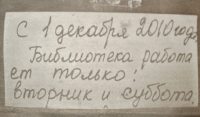 С 1 декабря 2010 года
Библиотека работа
ет только:
вторник и суббота.